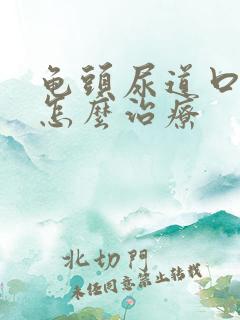 龜頭尿道口
怎麼治療
北切門
未经同意禁止转载